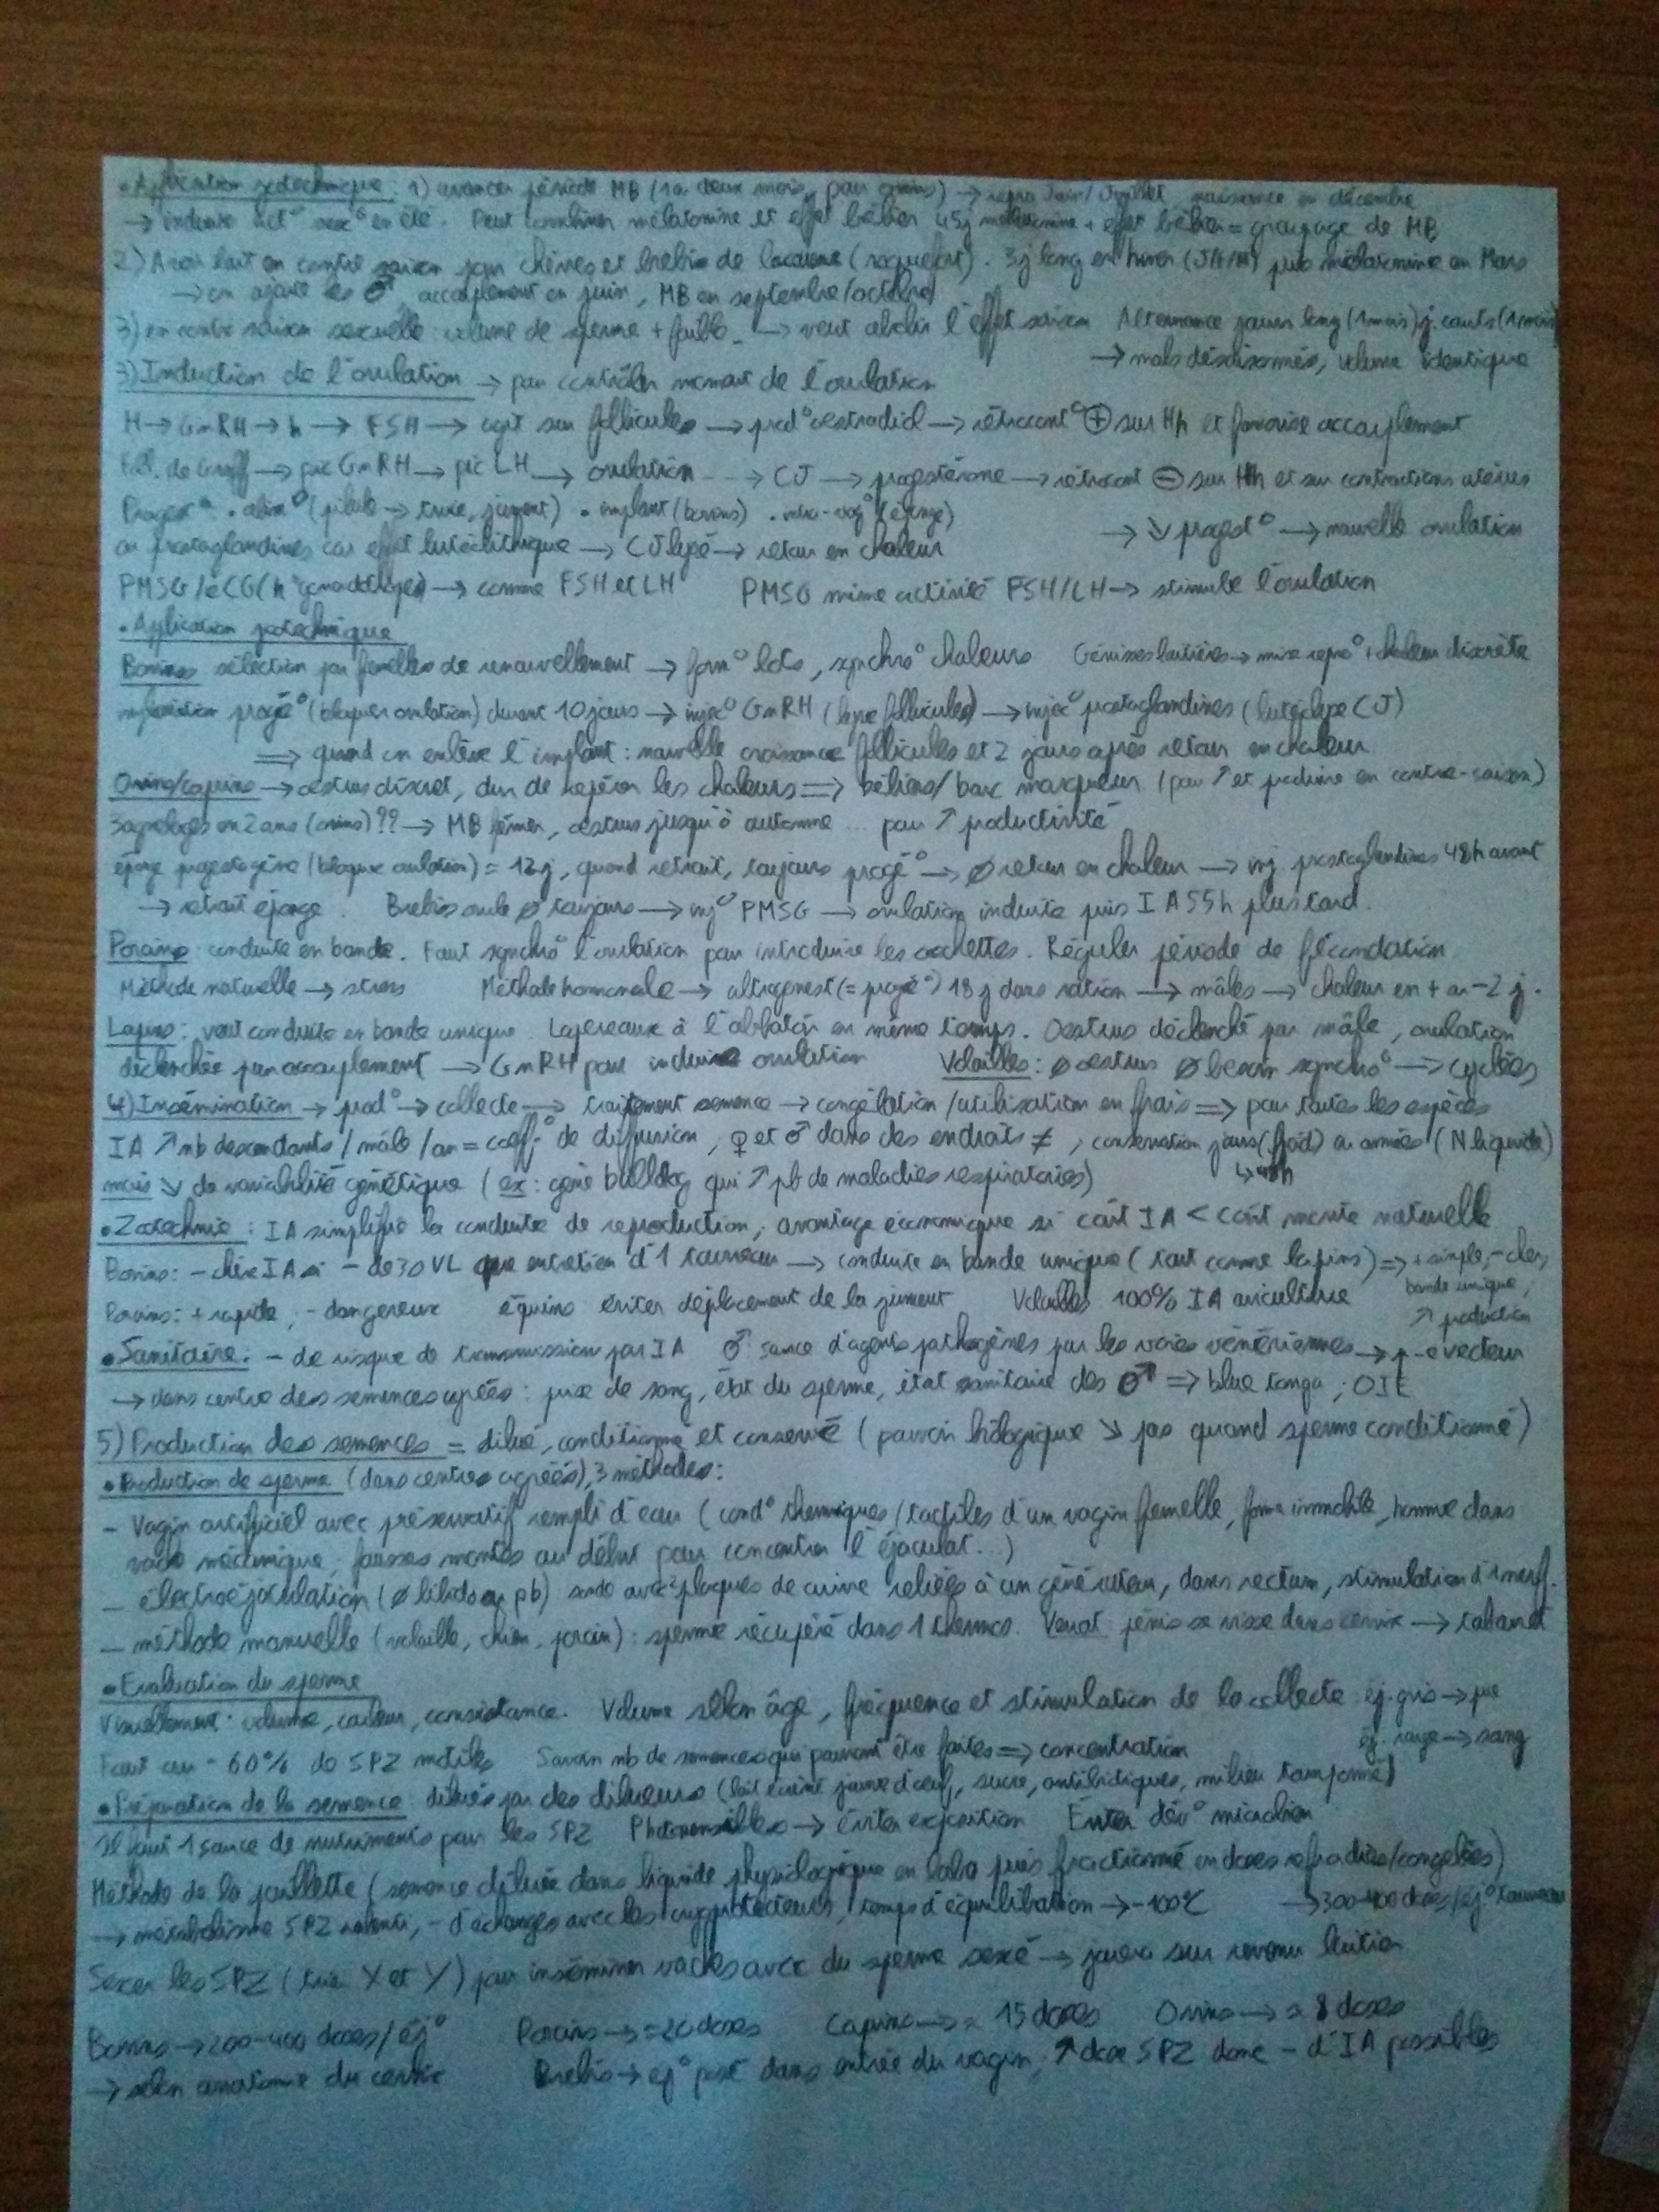 • Application zootechnique : 1) avancer période MB (1 à deux mois, pour ovins) → repro Juin/Juillet naissance en décembre
→ induire act° sex° en été. Peut combiner mélatonine et effet bélier 45j mélatonine + effet bélier = groupage de MB
2) Avoir lait en contre saison pour chèvres et brebis de lacaune (roquefort). 3j long en hiver (J/F/M) puis mélatonine en Mars
→ on ajoute les ♂, accouplement en juin, MB en septembre/octobre
3) en contre saison sexuelle : volume de sperme + faible → veut abolir l'effet saison Alternance jours long (1mois) j. courts (1mois)
→ mals désaisonnés, volume identique
3) Induction de l'ovulation → pour contrôler moment de l'ovulation
H → GnRH → h → FSH → agit sur follicules → prod° oestradiol → rétrocont° ⊕ sur Hh et favorise accouplement
Fol. de Graff → pic GnRH → pic LH → ovulation --→ CJ → progestérone → rétrocont ⊖ sur Hh et sur contractions utérus
→ ↘ progest° → nouvelle ovulation
Progest° • alim° (pilule → truie, jument) • implant (bovins) • intra-vag° (éponge)
ou prostaglandines car effet lutéolithique → CJ lysé → retour en chaleur
PMSG/eCG (h° gonadotrope) → comme FSH et LH PMSG mime activité FSH/LH → stimule l'ovulation
• Application zootechnique
Bovins sélection par femelles de renouvellement → form° lots, synchro° chaleurs Génisses laitières → mise repro° + chaleur discrète
progé° (bloquer ovulation) durant 10 jours → injec° GnRH (lyse follicules) → injec° prostaglandines (lutéolyse CJ)
⇒ quand on enlève l'implant : nouvelle croissance follicules et 2 jours après retour en chaleur
Ovins/caprins → oestrus discret, dur de repérer les chaleurs ⇒ béliers/bouc marqueur (pour ↗ et produire en contre-saison)
3 agnelages en 2 ans (ovins) ?? → MB février, oestrus jusqu'à automne ... pour ↗ productivité
éponge progestagène (bloque ovulation) = 12j, quand retrait, toujours progé° → ø retour en chaleur → inj prostaglandines 48h avant
→ retrait éponge. Brebis ovule ø toujours → inj° PMSG → ovulation induite puis IA 55h plus tard.
Porcins : conduite en bande. Faut synchro° l'ovulation pour introduire les cochettes. Réguler période de fécondation
Méthode naturelle → stress Méthode hormonale → altrogenest (= progé°) 18j dans ration → mâles → chaleur en + ou - 2 j.
Lapins : veut conduite en bande unique. Lapereaux à l'abbatoir en même temps. Oestrus déclenché par mâle, ovulation
déclenchée par accouplement → GnRH pour induire ovulation Volailles : ø oestrus ø besoin synchro° → cyclées
4) Insémination → prod° → collecte → traitement semence → congélation/utilisation en frais ⇒ pour toutes les espèces
IA ↗ nb descendants/mâle/an = coeff° de diffusion, ♀ et ♂ dans des endroits ≠, conservation jours (froid) ou années (N liquide)
↳ 48h
mais ↘ de variabilité génétique (ex : gène bulldog qui ↗ pb de maladies respiratoires)
• Zootechnie : IA simplifie la conduite de reproduction, avantage économique si coût IA < coût monte naturelle
Bovins : - chère IA si - de 30 VL que entretien d'1 taureau → conduite en bande unique (tout comme lapins) ⇒ + simple, - cher,
bande unique,
↗ production
Porcins : + rapide, - dangereux équins éviter déplacement de la jument Volailles 100% IA aviculture
• Sanitaire : - de risque de transmission par IA ♂ source d'agents pathogènes par les voies vénériennes → vecteur
→ dans centre des semences agréés : prise de sang, état du sperme, état sanitaire des ♂ ⇒ blue tongu ; OIE
5) Production des semences = dilué, conditionné et conservé (pouvoir biologique ↘ pas quand sperme conditionné)
• Production de sperme (dans centres agréés), 3 méthodes :
- Vagin artificiel avec préservatif rempli d'eau (cond° thermiques/tactiles d'un vagin femelle, forme immobile, homme dans
vache mécanique, fausses montes au début pour concentrer l'éjaculat...)
- électroéjaculation (ø libido ou pb) sonde avec plaques de cuivre reliées à un générateur, dans rectum, stimulation d'1 nerf.
- méthode manuelle (volaille, chien, porcin) : sperme récupéré dans 1 thermos. Verrat pénis se visse dans cervix →
• Evaluation du sperme
Visuellement : volume, couleur, consistance. Volume selon âge, fréquence et stimulation de la collecte éj. gris → pus
éj. rouge → sang
Faut au - 60% de SPZ motiles Savoir nb de semences qui peuvent être faites ⇒ concentration
• Préparation de la semence : dilués par des dilueurs (lait écrémé jaune d'oeuf, sucre, antibiotiques, milieu tamponné)
Il faut 1 source de nutriments pour les SPZ Photosensibles → éviter exposition Eviter dév° microbien
Méthode de la paillette (semence diluée dans liquide physiologique en labo puis fractionné en doses refroidies/congelées)
→ métabolisme SPZ ralenti, - d'échanges avec les cryoprotecteurs, temps d'équilibration → -100°C → 300-400 doses/éj° taureau
Sexer les SPZ (trier X et Y) pour inséminer vaches avec du sperme sexé → jouera sur revenu laitier
Bovins → 200-400 doses/éj° Porcins → ≈20 doses Caprins → ≈ 15 doses Ovins → ≈ 8 doses
→ selon anatomie du cervix Brebis → éj° posé dans entrée du vagin, ↗ dose SPZ donc - d'IA possibles